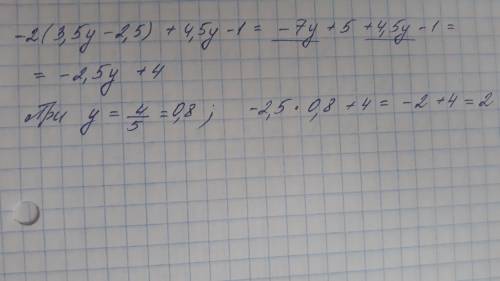 -2(3,5y-2,5) + 4,5y-1 = -7y + 5 + 4,5y - 1 =
= -2,5y + 4
При y = 4/5 = 0,8 ; -2,5 · 0,8 + 4 = -2 + 4 = 2